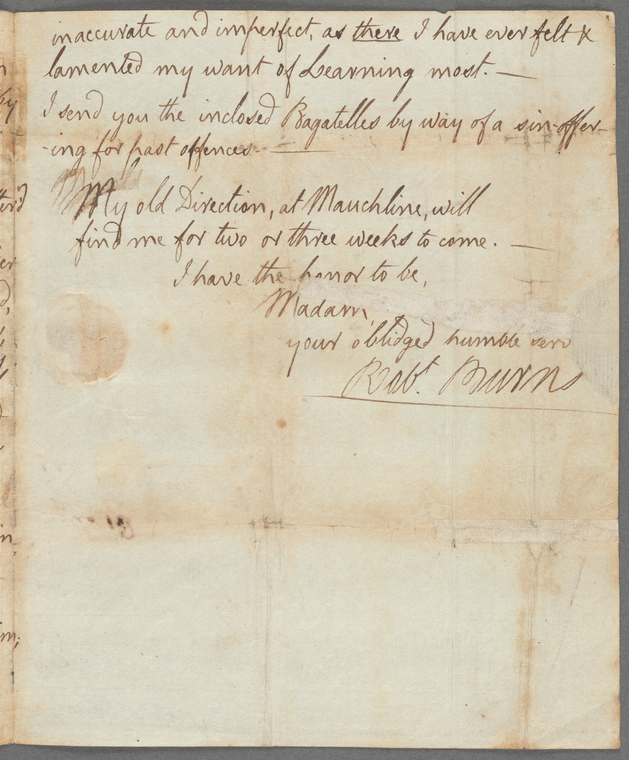 inaccurate and imperfect, as there I have ever felt &
lamented my want of Learning most. —
I send you the inclosed Bagatelles by way of a sin-offer-
-ing for past offences —
My old Direction, at Mauchline, will
find me for two or three weeks to come. —
I have the honor to be,
Madam,
your obliged humble serv
Robt. Burns